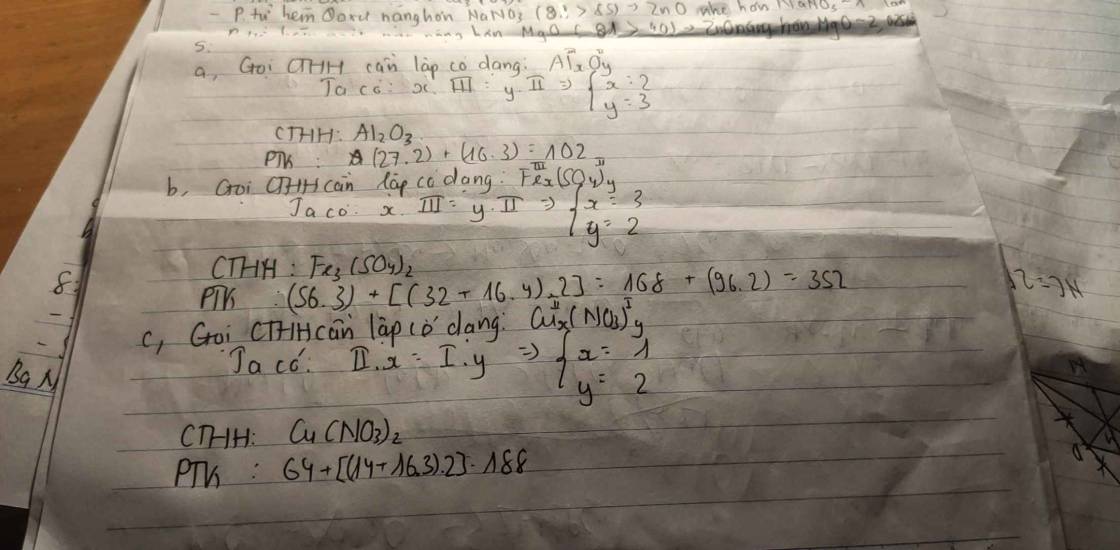 - P.tử kẽm Oxit nặng hơn NaNO₃ (81 > 85) → ZnO nhẹ hơn NaNO₃
MgO (81 > 40) → ZnO nặng hơn MgO
5.
a, Gọi CTHH cần lập có dạng: AlₓOy
III II
Ta có: x. III = y. II => { x = 2
y = 3
CTHH: Al₂O₃
PTK : (27.2) + (16.3) = 102
b, Gọi CTHH cần lập có dạng: Feₓ(SO₄)y
III II
Ta có: x. III = y. II => { x = 3
y = 2
CTHH : Fe₃(SO₄)₂
PTK : (56.3) + [(32 + 16.4).2] = 168 + (96.2) = 352
c, Gọi CTHH cần lập có dạng: Cuₓ(NO₃)y
II I
Ta có: II.x = I.y => { x = 1
y = 2
CTHH: Cu(NO₃)₂
PTK : 64+[(14+16.3).2] = 188
8:
Ba N
NC = 2
M